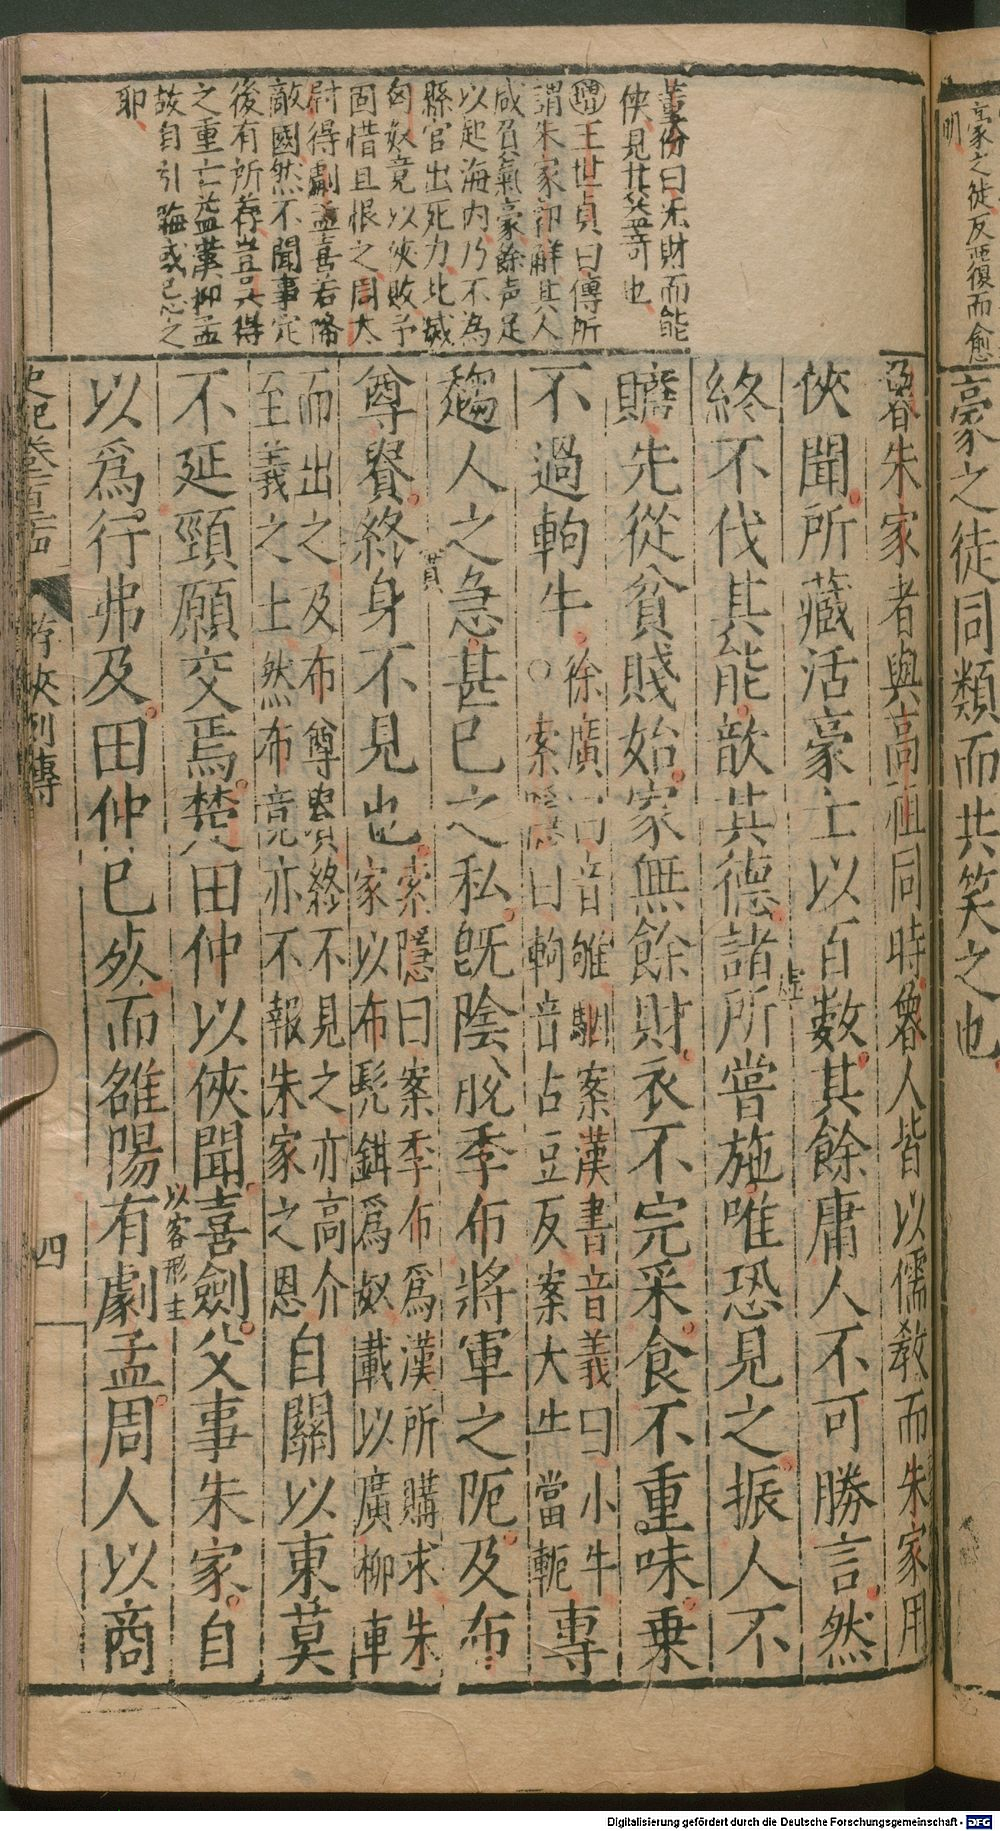 豪之徒反㤀復而愈
明
豪之徒同類而共笑之也
董份曰朱財而能
俠見其益奇也
增王世貞曰傳所
謂朱家郭解其人
咸負氣豪餘声足
以起海内乃不為
縣官出死力北滅
匈奴竟以俠敗予
固惜且恨之周太
尉得劇孟喜若降
敵國然不聞事定
後有所薦豈其得
之重亡益漢抑孟
故自引晦或忌之
耶
魯朱家者與高祖同時魯人皆以儒教而朱家用
俠聞所藏活豪士以百數其餘庸人不可勝言然
終不伐其能歆其德諸所嘗施唯恐見之振人不
贍先從貧賤始家無餘財衣不完采食不重味乗
不過軥牛○徐廣曰音雊駰案漢書音義曰小牛
索隱曰軥音古豆反案大牛當軛
專
趨人之急甚已之私旣陰脫季布將軍之阨及布
尊貴終身不見也索隱曰案季布爲漢所購求朱
家以布髡鉗爲奴載以廣柳車
而出之及布尊貴終不見之亦高介
至義之士然布竟亦不報朱家之恩
自關以東莫
不延頸願交焉楚田仲以俠聞喜劍父事朱家自
以客形主
以爲行弗及田仲已死而雒陽有劇孟周人以商
史記卷一百二十四
游俠列傳
四
Digitalisierung gefördert durch die Deutsche Forschungsgemeinschaft - DFG